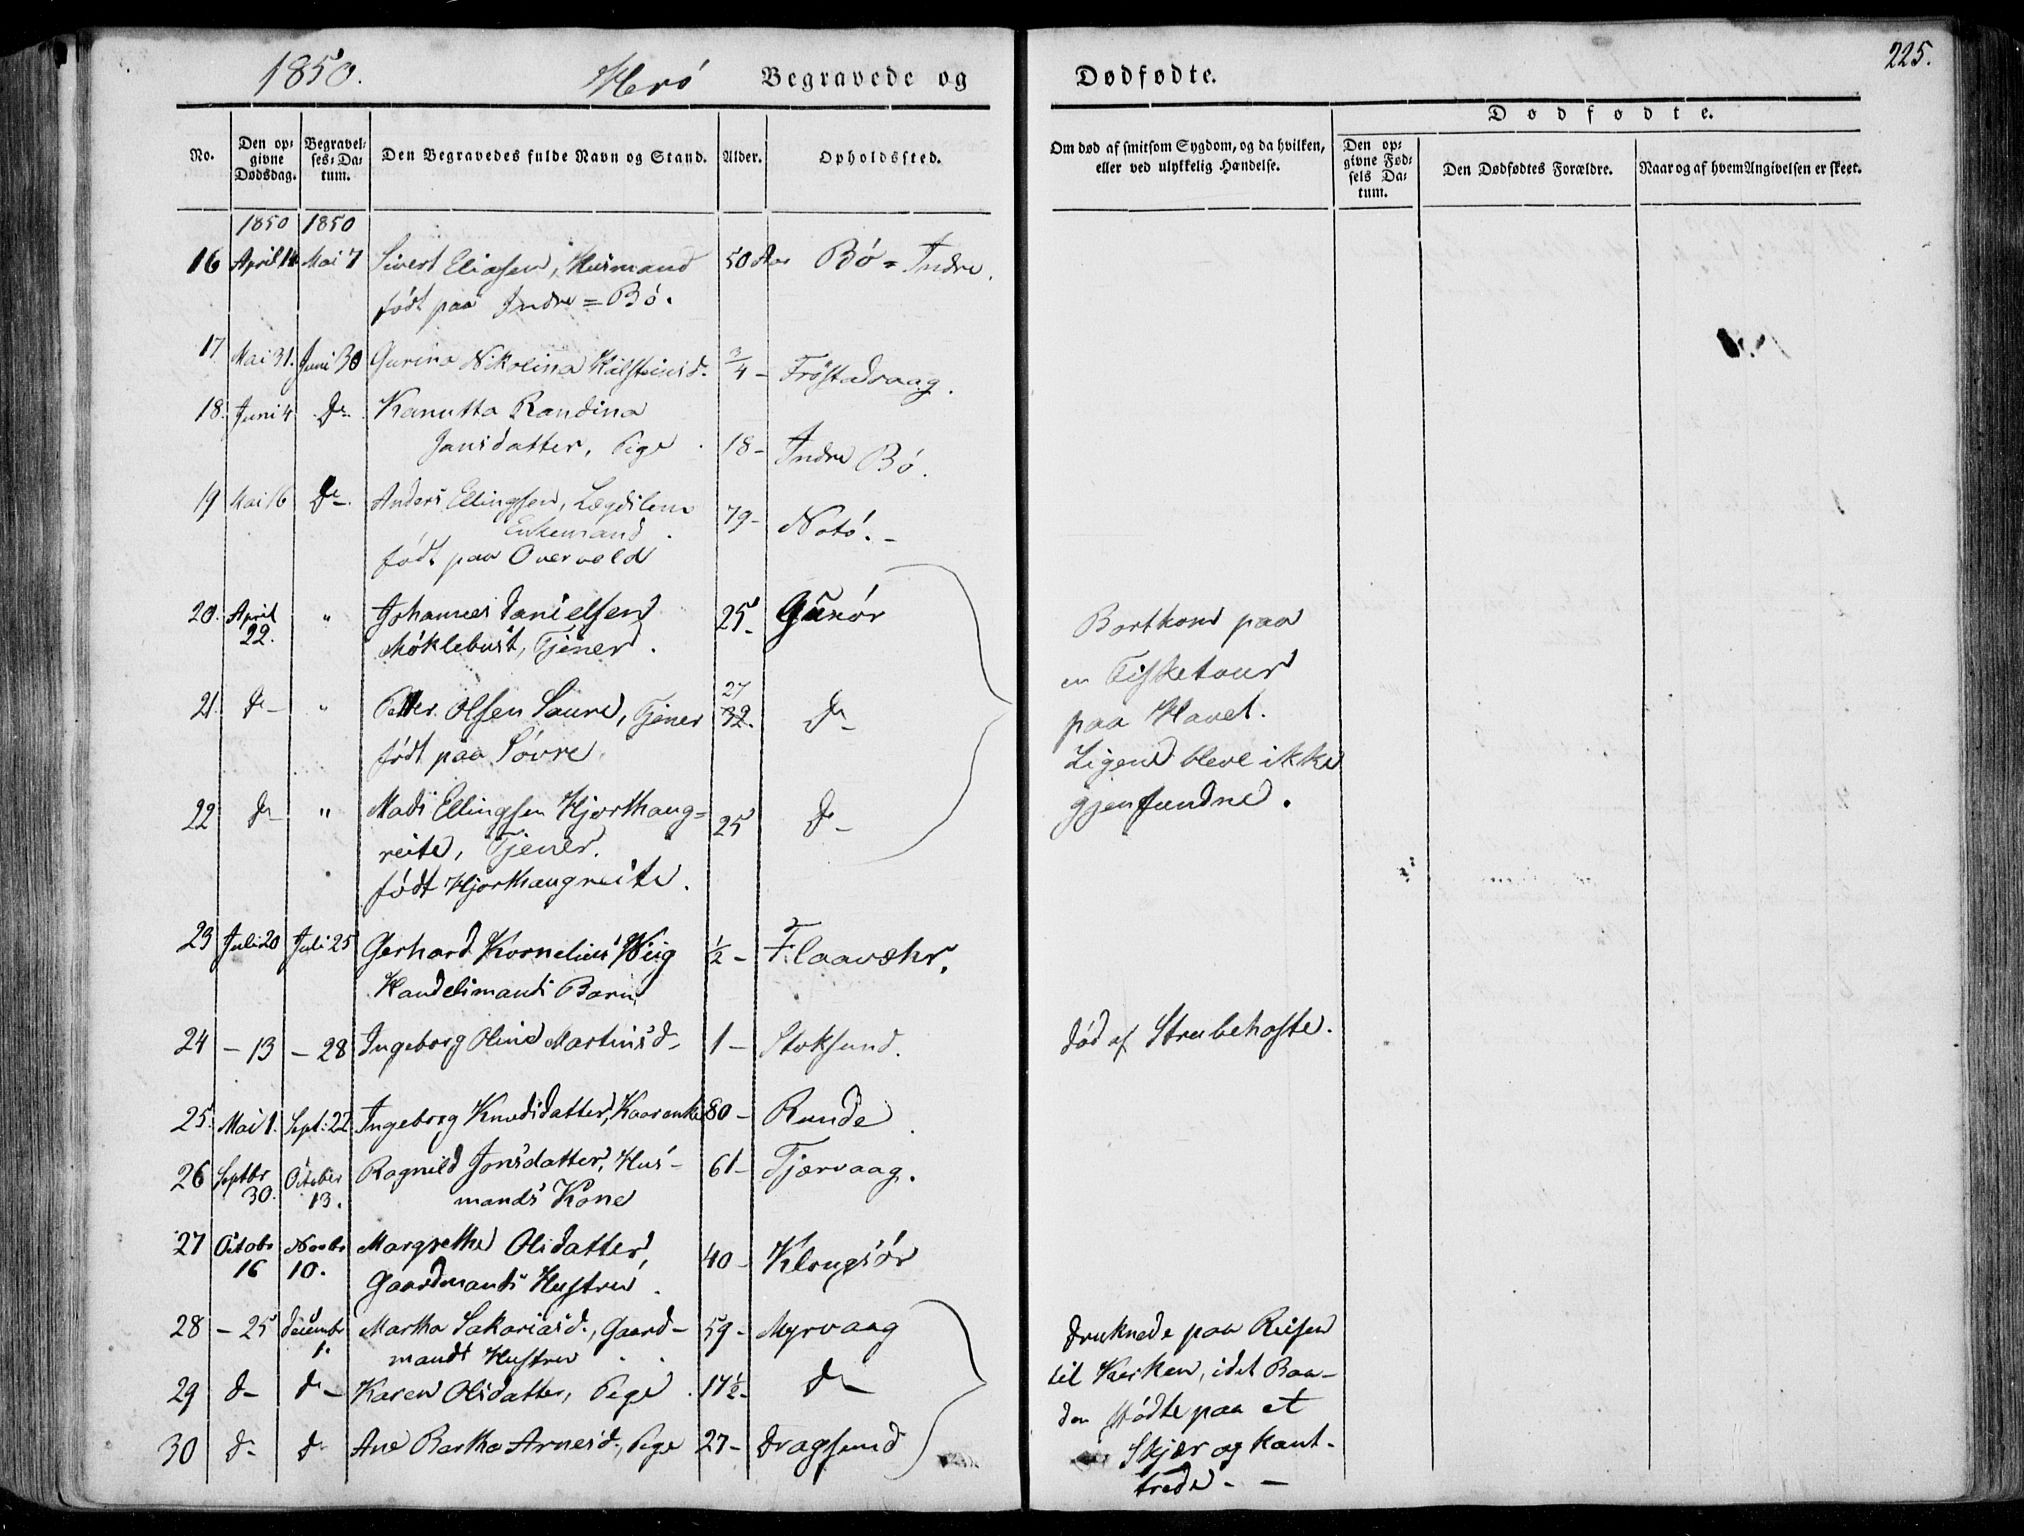 1850. Herö Begravede og Dødfødte. 225.
No. Den opgivne Dødsdag. Begravelses-Datum. Den Begravedes fulde Navn og Stand. Alder. Opholdssted. Om død af smitsom Sygdom, og da hvilken, eller ved ulykkelig Hændelse. Dødfødte.
Den opgivne Fødsels Datum. Den Dødfødtes Forældre. Naar og af hvem Angivelsen er skeet.
1850 1850
16 April 14 Mai 7 Sivert Eliasen, Husmand 50 Aar Bö = Indre.
født paa Indre = Bö.
17 Mai 31. Juni 30 Gurine Nikolina Hilsteinsd. 3/4 - Fröstadvaag.
18. Juni 4 Do Kanutta Randina
Jansdatter, Pige. 18 - Indre Bö.
19 Mai 16 Do Anders Ellingsen, Lægdslem
Enkemand. 79 - Notö. -
født paa Overvold
20. April 22. " Johannes Danielsen
Möklebust, Tjener. 25. Gurör
21. Do " Petter Olsen Saure, Tjener 27 32. Do
født paa Sövre
22 Do " Mads Ellingsen Hjorthaug=
reite, Tjener. 25 Do
født Hjorthaugreite.
Bortkom paa
en Fisketour
paa Havet.
Ligene bleve ikke
gjenfundne.
23 Juli 20 Juli 25 Gerhard Kornelius Wiig 1/2 - Flaavær.
Handelsmands Barn
24 - 13 - 28 Ingeborg Oline Martinsd. 1 - Stoksund. død af Strubehoste.
25. Mai 1. Sept: 22 Ingeborg Knudsdatter, Kaarenke 80 - Runde.
26 Septbr 30. October 13. Ragnild Jonsdatter, Hus-
mands Kone 61 - Tjærvaag.
27 Octobr 16 Novbr 10. Margrethe Olsdatter,
Gaardmands Hustru. 40 - Klongsör
28 - 25 Decembr 1. Martha Sakariasd., Gaard-
mands Hustru 59 - Myrvaag
29 Do Do Karen Olsdatter, Pige. 17 1/2 - Do
30 Do Do Ane Bartha Arnesd., Pige 27 - Dragsund
Druknede paa Reisen
til Kirken, idet Baa-
den stødte paa et
Skjær og kant-
trede. -